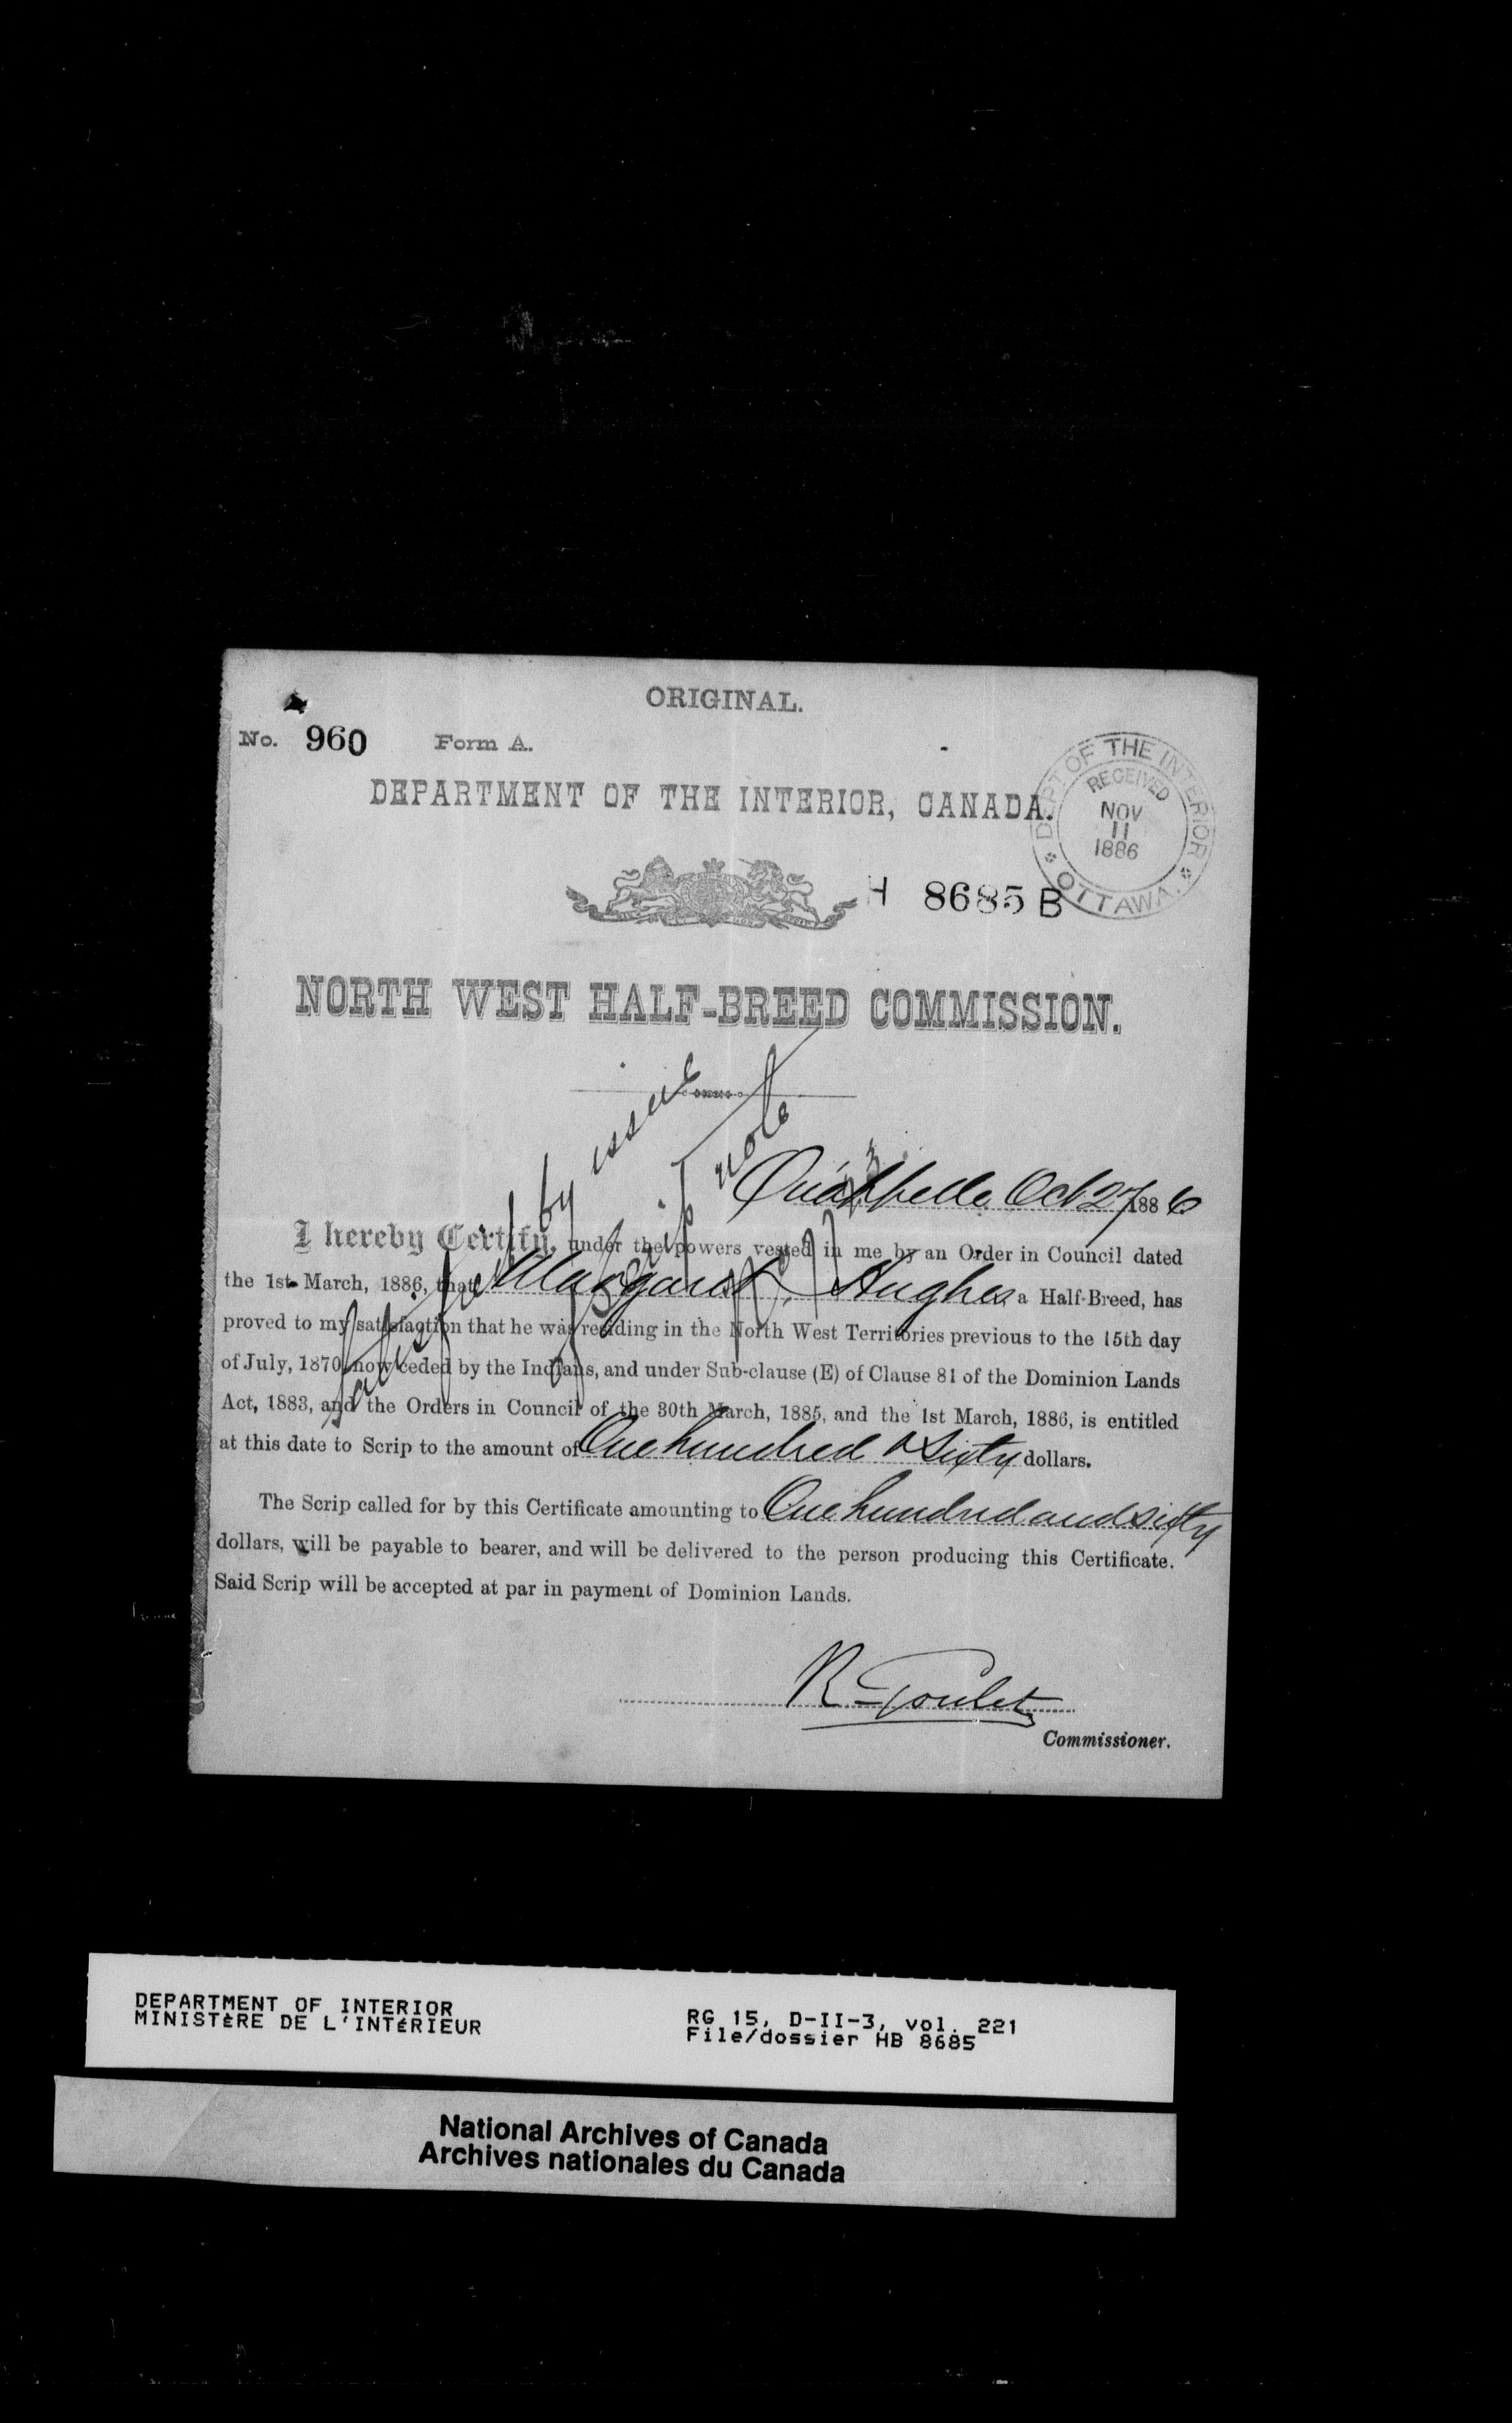 ORIGINAL.
No. 960 Form A.
DEPARTMENT OF THE INTERIOR, CANADA.
DEPT OF THE INTERIOR
RECEIVED
NOV
11
1886
OTTAWA.
H 8685 B
NORTH WEST HALF-BREED COMMISSION.
by issue
note
Qu'Appelle Oct 27 1886
I hereby Certify, under the powers vested in me by an Order in Council dated
the 1st March, 1886, that Margaret Hughes a Half-Breed, has
proved to my satisfaction that he was residing in the North West Territories previous to the 15th day
of July, 1870, now ceded by the Indians, and under Sub-clause (E) of Clause 81 of the Dominion Lands
Act, 1883, and the Orders in Council of the 30th March, 1885, and the 1st March, 1886, is entitled
at this date to Scrip to the amount of One hundred & Sixty dollars.
The Scrip called for by this Certificate amounting to One hundred and sixty
dollars, will be payable to bearer, and will be delivered to the person producing this Certificate.
Said Scrip will be accepted at par in payment of Dominion Lands.
R Goulet
Commissioner.
DEPARTMENT OF INTERIOR
MINISTÈRE DE L'INTÉRIEUR
RG 15, D-II-3, vol. 221
File/dossier HB 8685
National Archives of Canada
Archives nationales du Canada